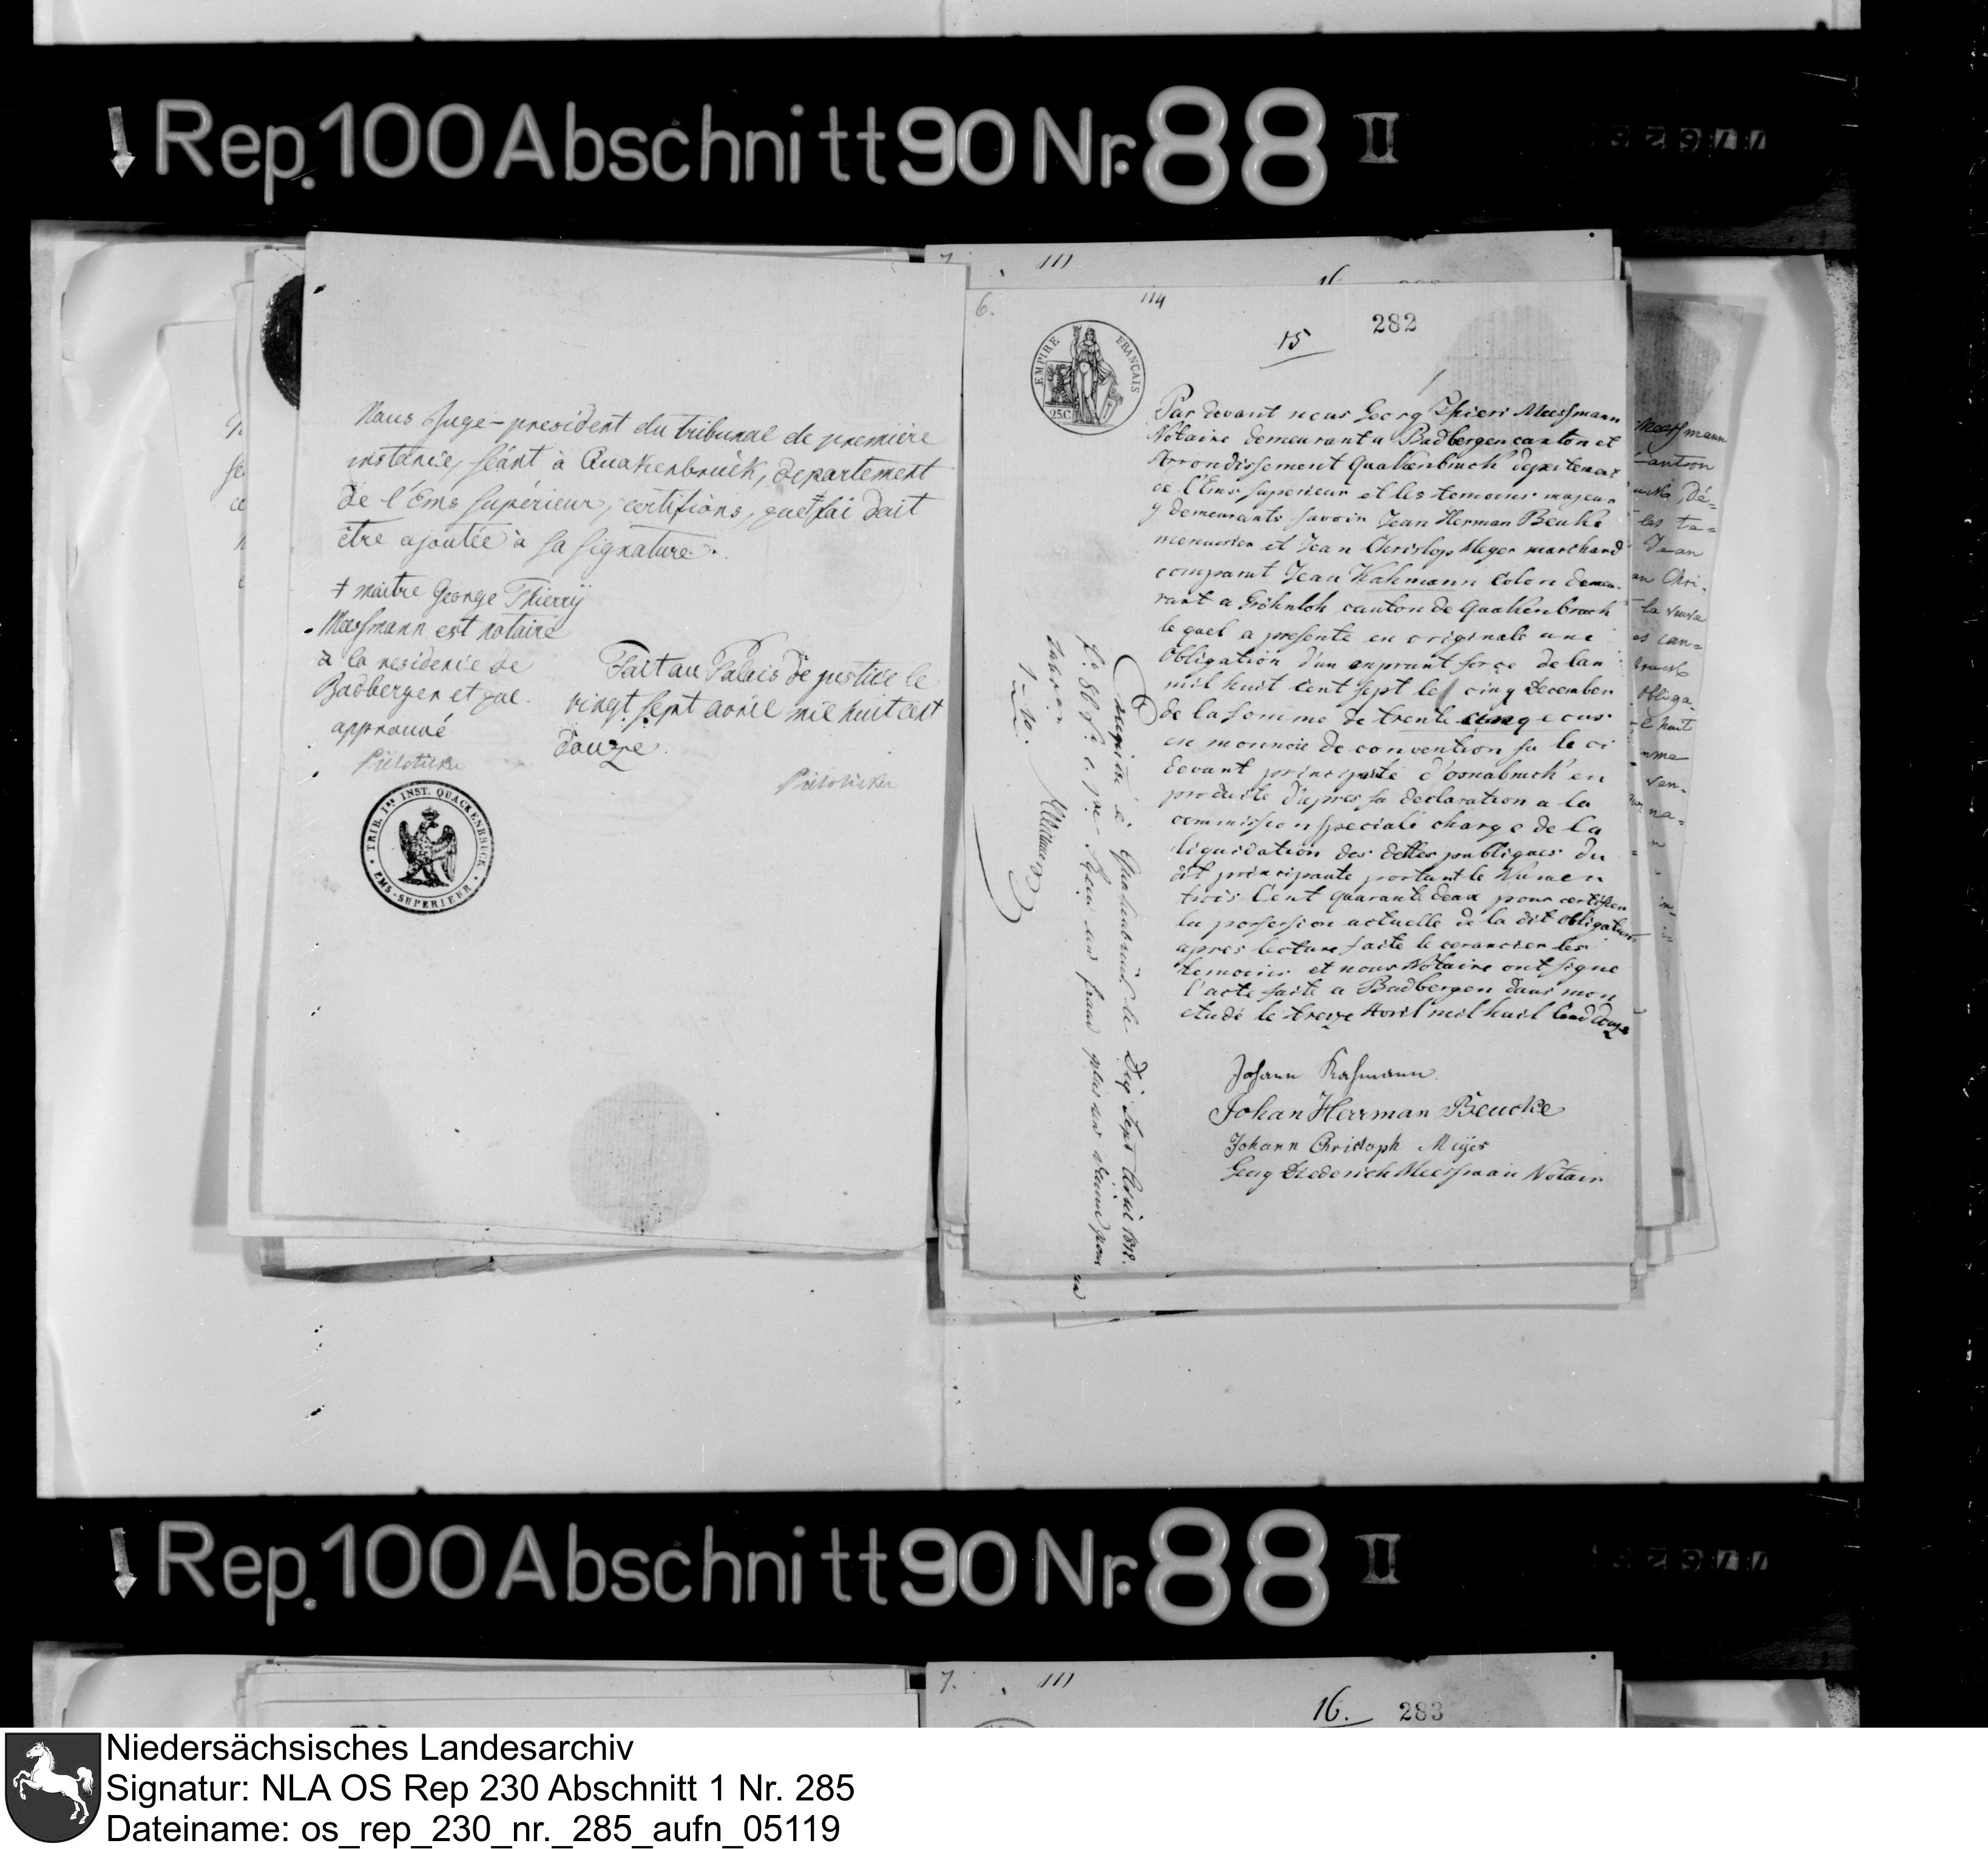 Rep. 100 Abschnitt 90 Nr. 88 II
Nous Juge-president du tribunal de première
instance, séant à Quakenbrück, departement
de l'Ems supérieur, certifions, que † foi doit
être ajoutée à sa signature.
† maitre George Thierry
Meessmann est notaire
à la residence de
Badbergen et
approuvé
Fait au Palais de justice le
vingt sept avril mil huit cent
douze.
TRIB. 1re INST. QUACKENBRUCK
EMS-SUPERIEUR
7. 111
16
6. 114
15
282
EMPIRE FRANÇAIS
25C
Par devant nous Georg Thieri Meessmann
Notaire demeurant a Badbergen canton et
Arrondissement Quakenbruck departement
de l'Ems superieur et les temoins majeur
y demeurants savoir Jean Herman Beuke
menuisier et Jean Christop Meyer marchand
comparut Jean Kahmann Colon demeu-
rant a Gröhnloh canton de Quakenbruck
le quel a presente en originale une
Obligation d'un emprunt force de lan
mil huit cent sept le cinq December
de la somme de trente cinq ecus
en monnoie de convention su le ci
devant principaute d'osnabruck en
produite d'apres sa declaration a la
commission speciale charge de la
liquidation des dettes publiques du
dit principaute portant le Numer
trois Cent quarante deux pour certifier
la possession actuelle de la dit obligation
apres lecture faite le creancier les
temoins et nous Notaire ont signe
l'acte faite a Badbergen dans mon
etude le treize Avril mil huit Cend douze
Johann Kahmann
Johan Herrman Beucke
Johann Christoph Meyer
Georg Diederich Meessman Notair
Enregistré à Quakenbruck le Dix Sept Avril 1812.
Reçu un franc plus un decime pour
Meessmann
canton
Jean
la veuve
Obliga-
Rep. 100 Abschnitt 90 Nr. 88 II
7. 111
16. 283
Niedersächsisches Landesarchiv
Signatur: NLA OS Rep 230 Abschnitt 1 Nr. 285
Dateiname: os_rep_230_nr._285_aufn_05119